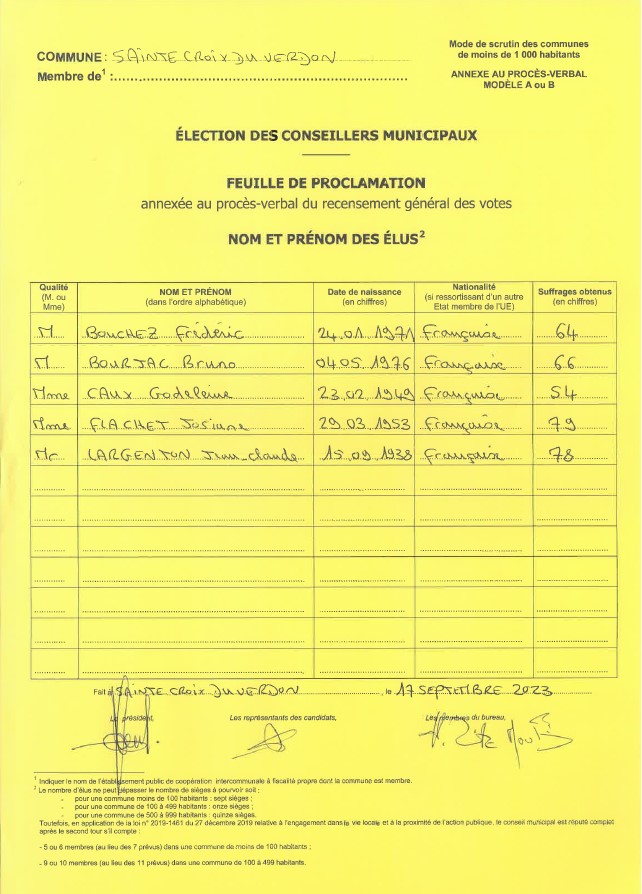 COMMUNE : SAINTE CROIX DU VERDON
Membre de¹ :
Mode de scrutin des communes
de moins de 1 000 habitants
ANNEXE AU PROCÈS-VERBAL
MODÈLE A ou B
ÉLECTION DES CONSEILLERS MUNICIPAUX
FEUILLE DE PROCLAMATION
annexée au procès-verbal du recensement général des votes
NOM ET PRÉNOM DES ÉLUS²
Qualité (M. ou Mme) NOM ET PRÉNOM (dans l'ordre alphabétique) Date de naissance (en chiffres) Nationalité (si ressortissant d'un autre Etat membre de l'UE) Suffrages obtenus (en chiffres)
M BOUCHEZ Frédéric 24.01.1971 Française 64
M BOURJAC Bruno 04.05.1976 Française 66
Mme CAUX Godeleine 23.02.1949 Française 54
Mme FLACHET Josiane 29.03.1953 Française 79
Mr LARGENTON Jean-claude 15.09.1938 Française 78
Fait à SAINTE CROIX DU VERDON, le 17 SEPTEMBRE 2023
Le président, Les représentants des candidats, Les membres du bureau,
¹ Indiquer le nom de l'établissement public de coopération intercommunale à fiscalité propre dont la commune est membre.
² Le nombre d'élus ne peut dépasser le nombre de sièges à pourvoir soit :
- pour une commune moins de 100 habitants : sept sièges ;
- pour une commune de 100 à 499 habitants : onze sièges ;
- pour une commune de 500 à 999 habitants : quinze sièges.
Toutefois, en application de la loi n° 2019-1461 du 27 décembre 2019 relative à l'engagement dans la vie locale et à la proximité de l'action publique, le conseil municipal est réputé complet
après le second tour s'il compte :
- 5 ou 6 membres (au lieu des 7 prévus) dans une commune de moins de 100 habitants ;
- 9 ou 10 membres (au lieu des 11 prévus) dans une commune de 100 à 499 habitants.